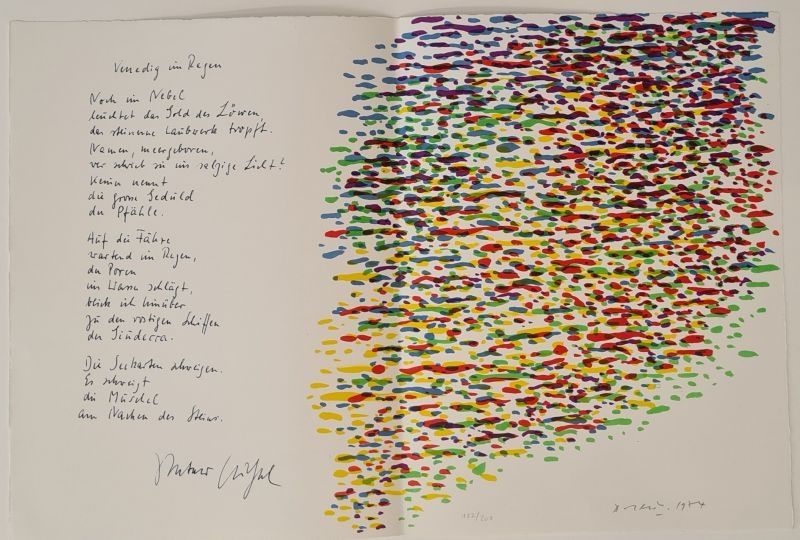 Venedig im Regen
Noch im Nebel
leuchtet das Gold des Löwen,
das steinerne Laubwerk tropft.
Namen, meergeboren,
wer schrieb sie ins salzige Licht?
Keiner nennt
die grosse Geduld
der Pfähle.
Auf die Fähre
wartend im Regen,
der Poren
ins Wasser schlägt,
blick ich hinüber
zu den rostigen Schiffen
der Giudecca.
Die Seekarten schweigen.
Es schweigt
die Muschel
am Nacken des Steins.
152/200
1974